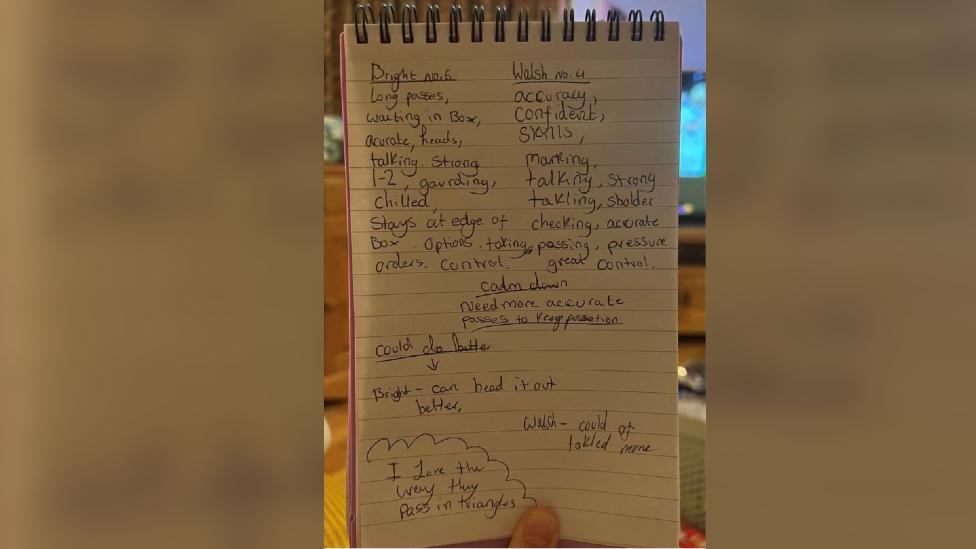 Bright no.6
long passes,
waiting in Box,
acurate, heads,
talking. Strong
1-2, gaurding,
chilled,
Stays at edge of
Box. Options. taking
orders. Control.
Walsh no.4
accuracy,
Confident,
Skills,
Marking,
talking, strong
takling, sholder
checking, accurate
passing, pressure
great control.
calm down
Need more accurate
passes to keep possetion
could do better
Bright - can head it out
better,
Walsh - could of
takled more
I Love the
way they
Pass in triangles